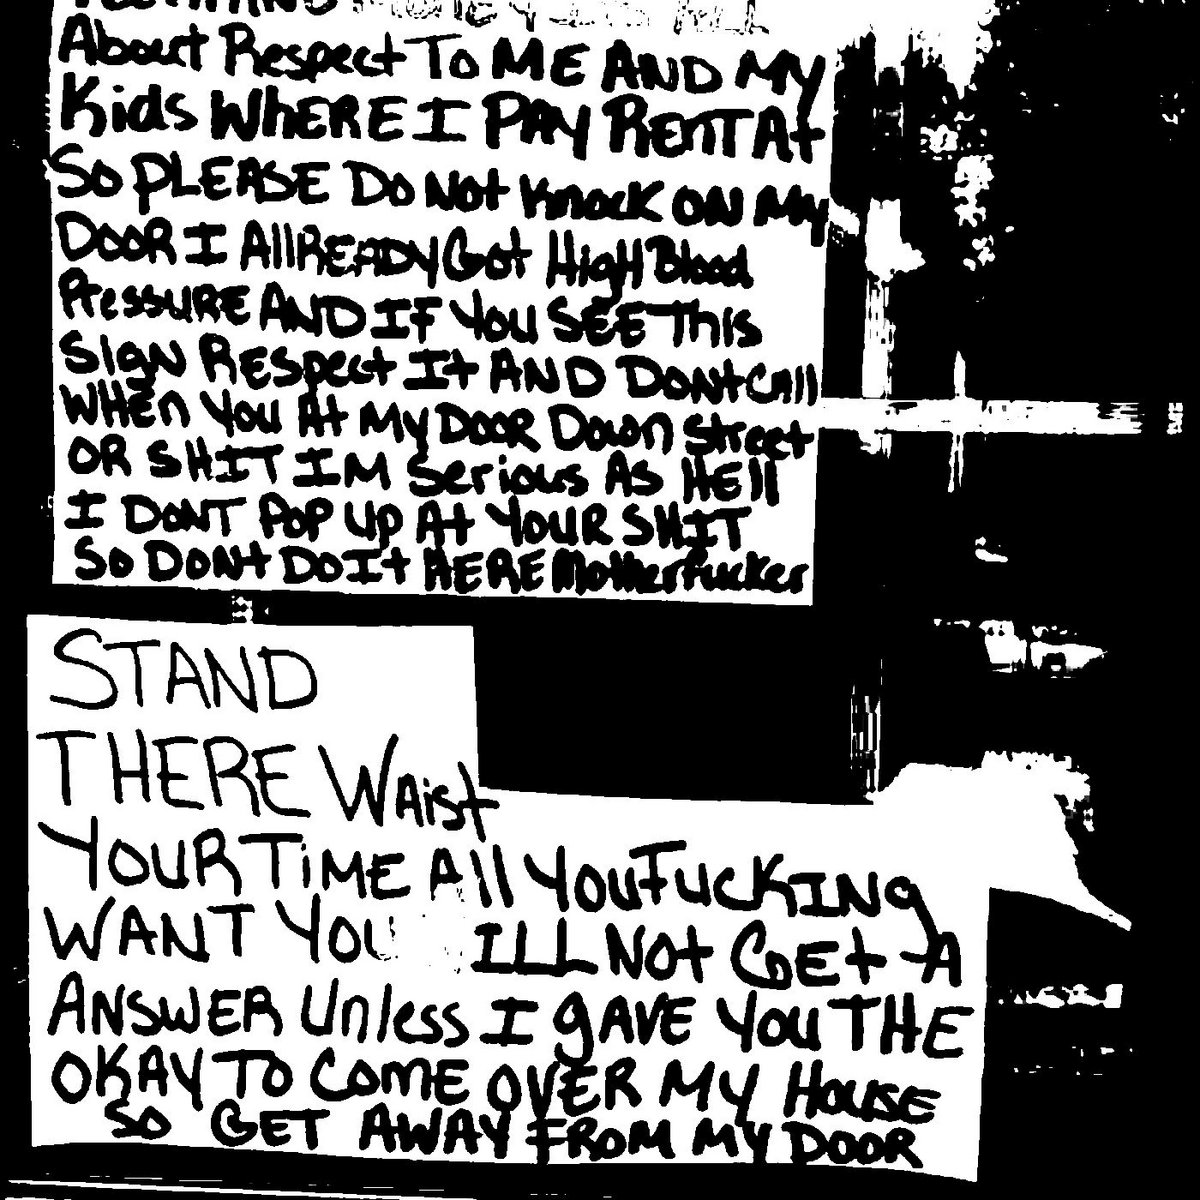 About Respect To ME AND MY
Kids WHERE I PAY RENT At
SO PLEASE DO NOt Knock ON MY
DOOR I AllREADY Got HigH Blood
PressURE AND IF YOU SEE This
SigN RESpect It AND DONt CAll
WHEn YOU At MY DOOR Down Street
OR SHIT IM Serious AS HEll
I DONT POP UP At YOUR SHIT
SO DONt DO It HERE Motherfucker
STAND
THERE WAist
YOUR TiME All YOU FUCKING
WANT YOU ILL NOt GEt A
ANSWER Unless I gAVE YOU THE
OKAY TO COME OVER MY HOUSE
SO GET AWAY FROM MY DOOR